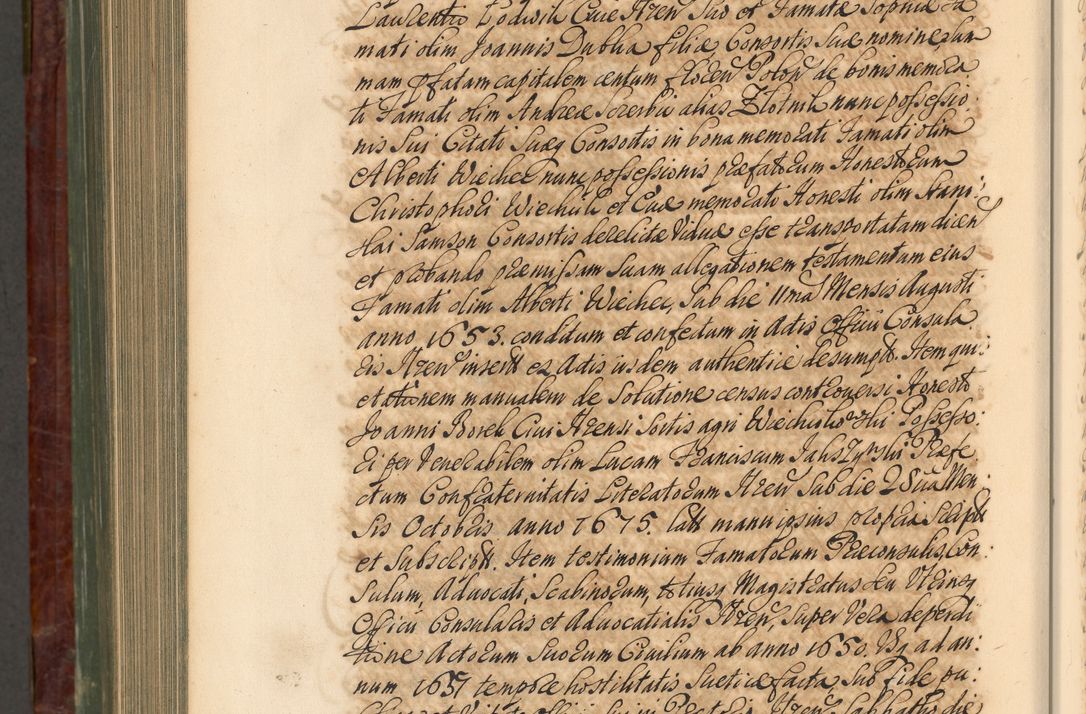 Laurentio Podwik Cive Xzen Suo et Famatæ Sophiæ Fa
mati olim Joannis Dubla filiæ Consortis Suæ nomine sum
mam pfatam capitalem centum flocen Polon de bonis memora
ti Famati olim Andreæ Szczerbic alias Zlotnik nunc possessio
nis Sui Citati Suæq Consortis in bona memorati Famati olim
Alberti Wiechec nunc possessionis præfatorum Honestorum
Christophori Wiechuli et Evæ memorati Honesti olim Stani:
slai Samson Consortis derelictæ Viduæ esse transportatam dicen
et probando præmissam Suam allegationem testamentum eius
Famati olim Alberti Wiechec, Sub die 11ma Mensis Augusti
anno 1653. conditum et confectum in Actis Officii Consula
ris Xzen insert ex Actis iisdem authentice desumpt. Item qui:
etationem manualem de Solutione census controversi Honesto
Joanni Borek Civi Xzensi Sortis agri Wiechutowski Possesso:
ri per Venerabilem olim Lucam Franciscum Jahszynski Præfe
ctum Confraternitatis Literatorum Xzen Sub die 28va Men:
sis Octobris anno 1675. latt manu ipsius propria Script
et Subscript. Item testimonium Famatorum Præconsulis, Con:
sulum, Advocati, Scabinorum, totiusq Magistratus seu Utriusq
Officii Consularis et Advocatialis Xzen, Super Vera deperdi
tione Actorum Suorum Civilium ab anno 1650. Usq ad an:
num 1657 tempore hostilitatis Sueticæ facta Sub fide pu: